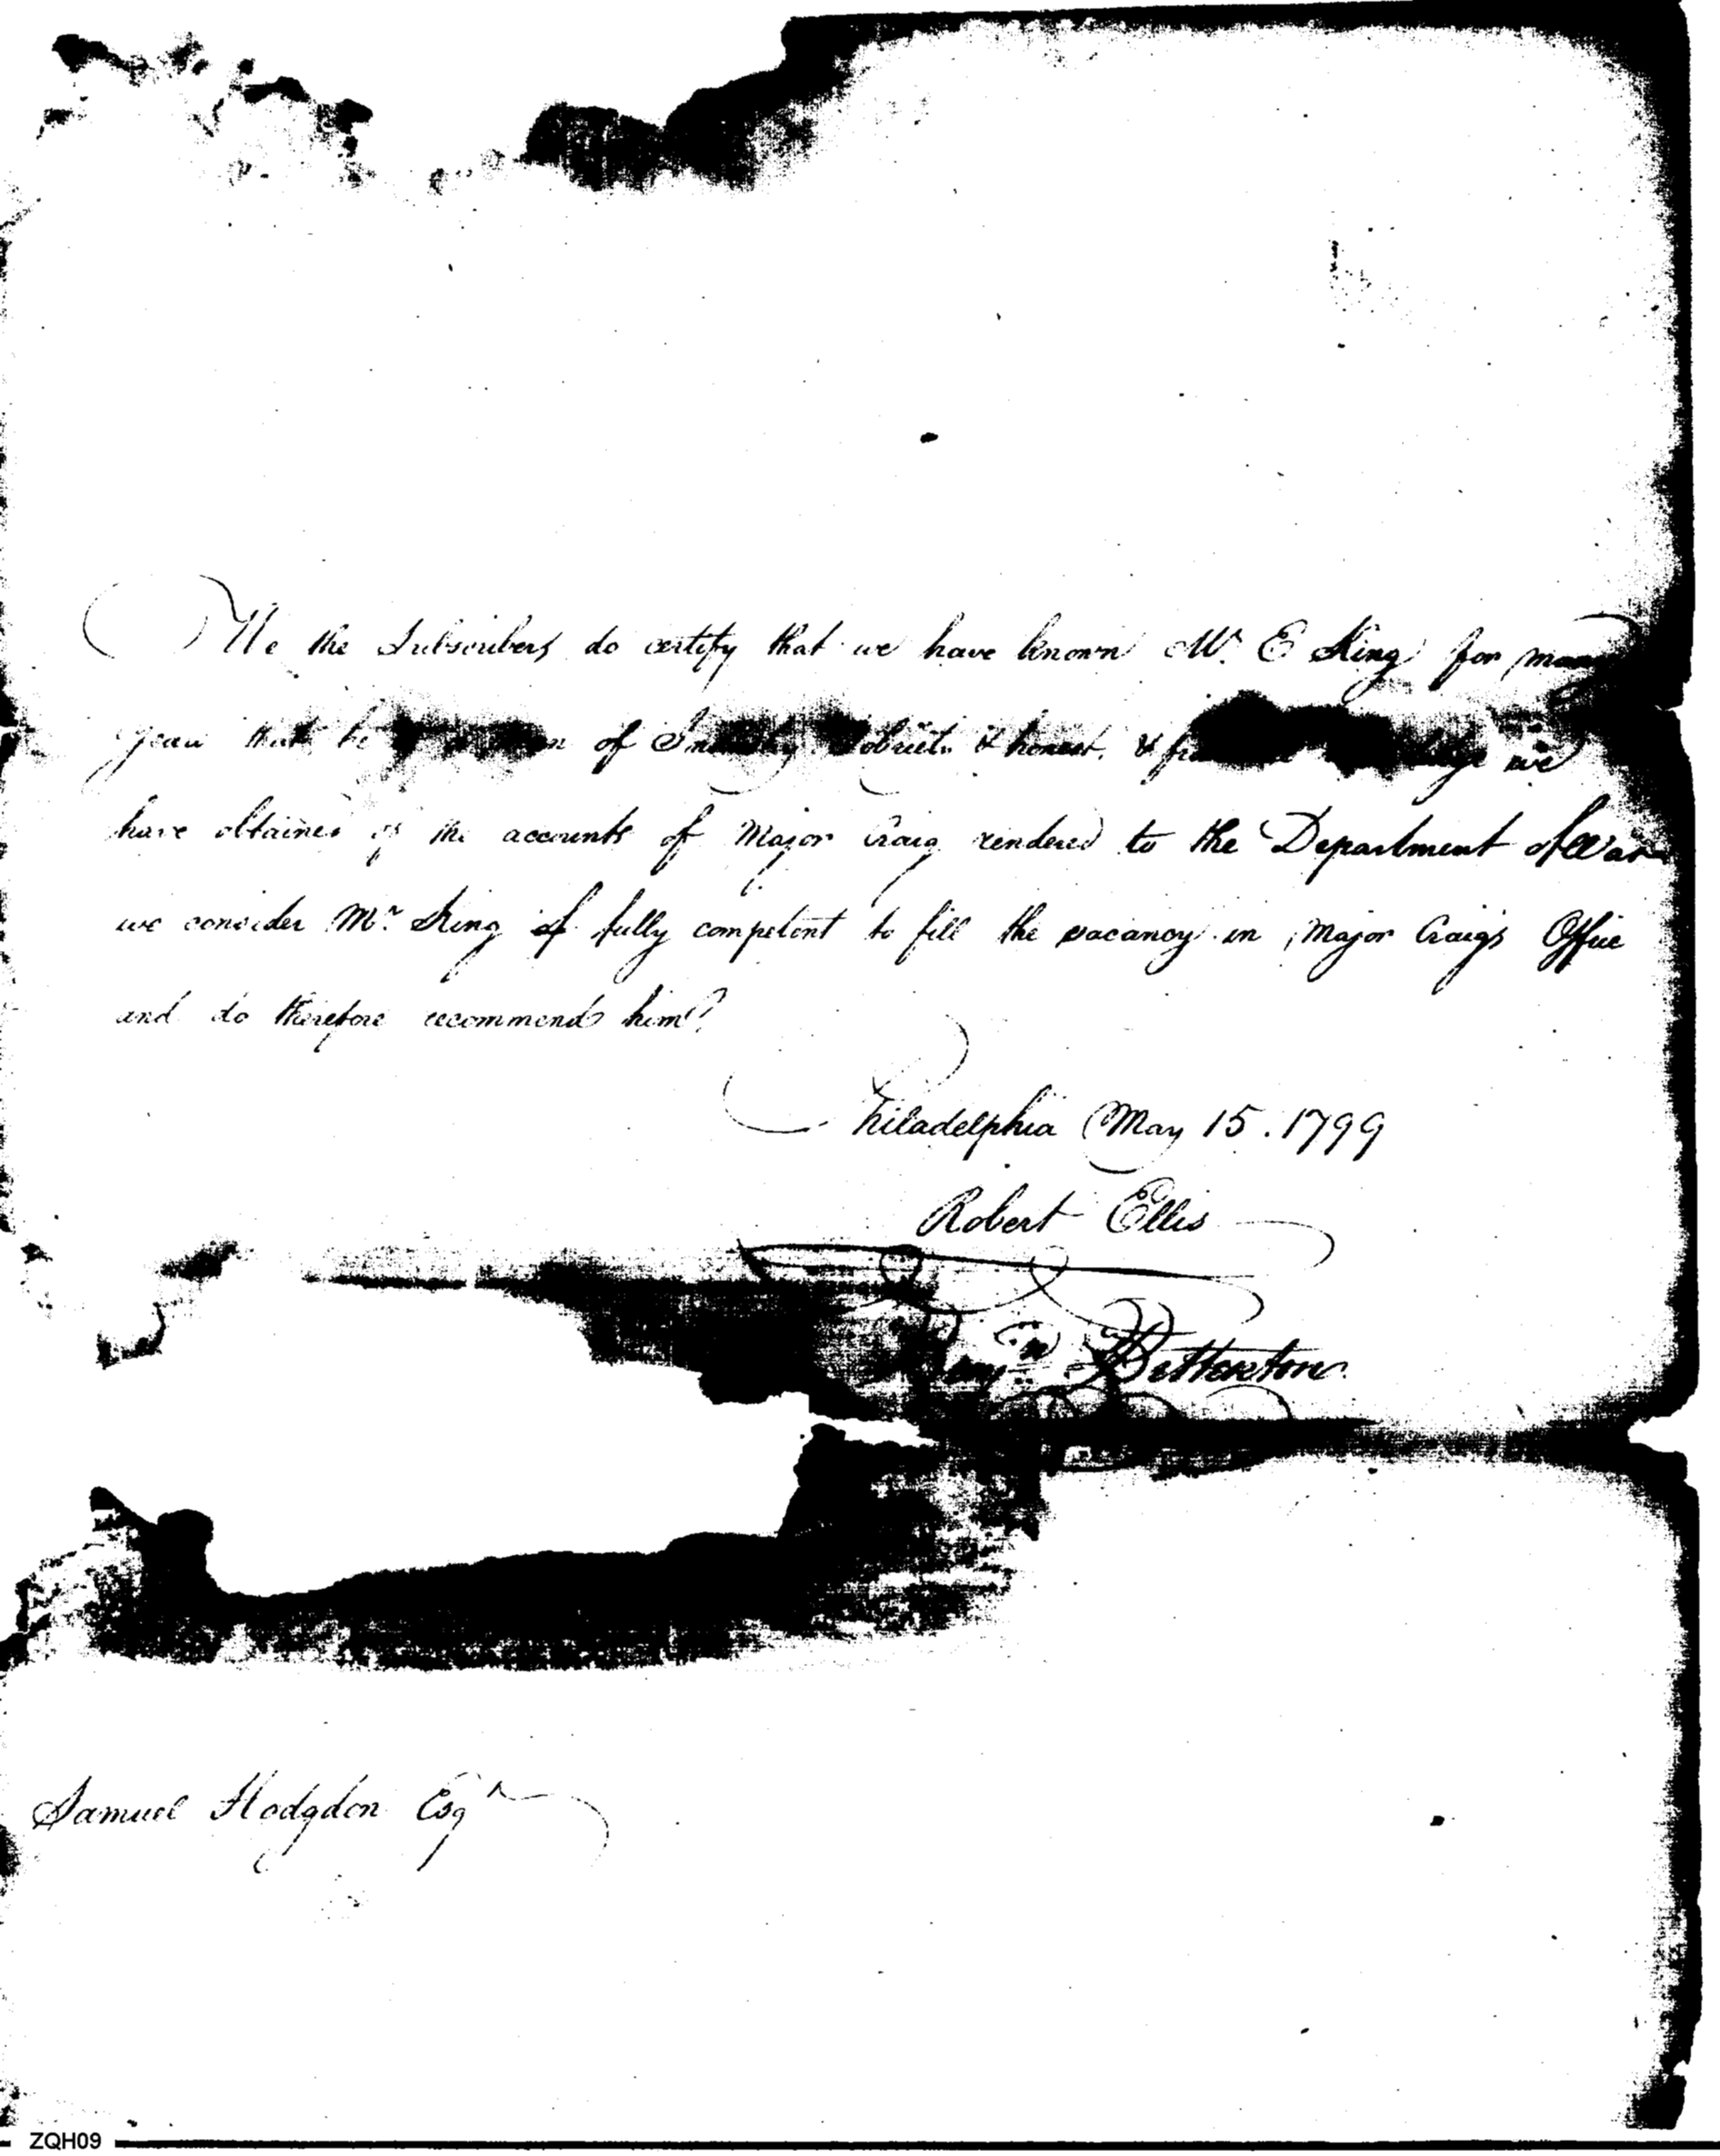 We the Subscribers do certify that we have known Mr. E King for many
years that he of Sobriety & honest, & we
have obtained of the accounts of Major Craig rendered to the Department of War
we consider Mr. King fully competent to fill the vacancy in Major Craigs Office
and do therefore recommend him
Philadelphia May 15. 1799
Robert Ellis
Benjn Betterton
Samuel Hodgdon Esqr
ZQH09